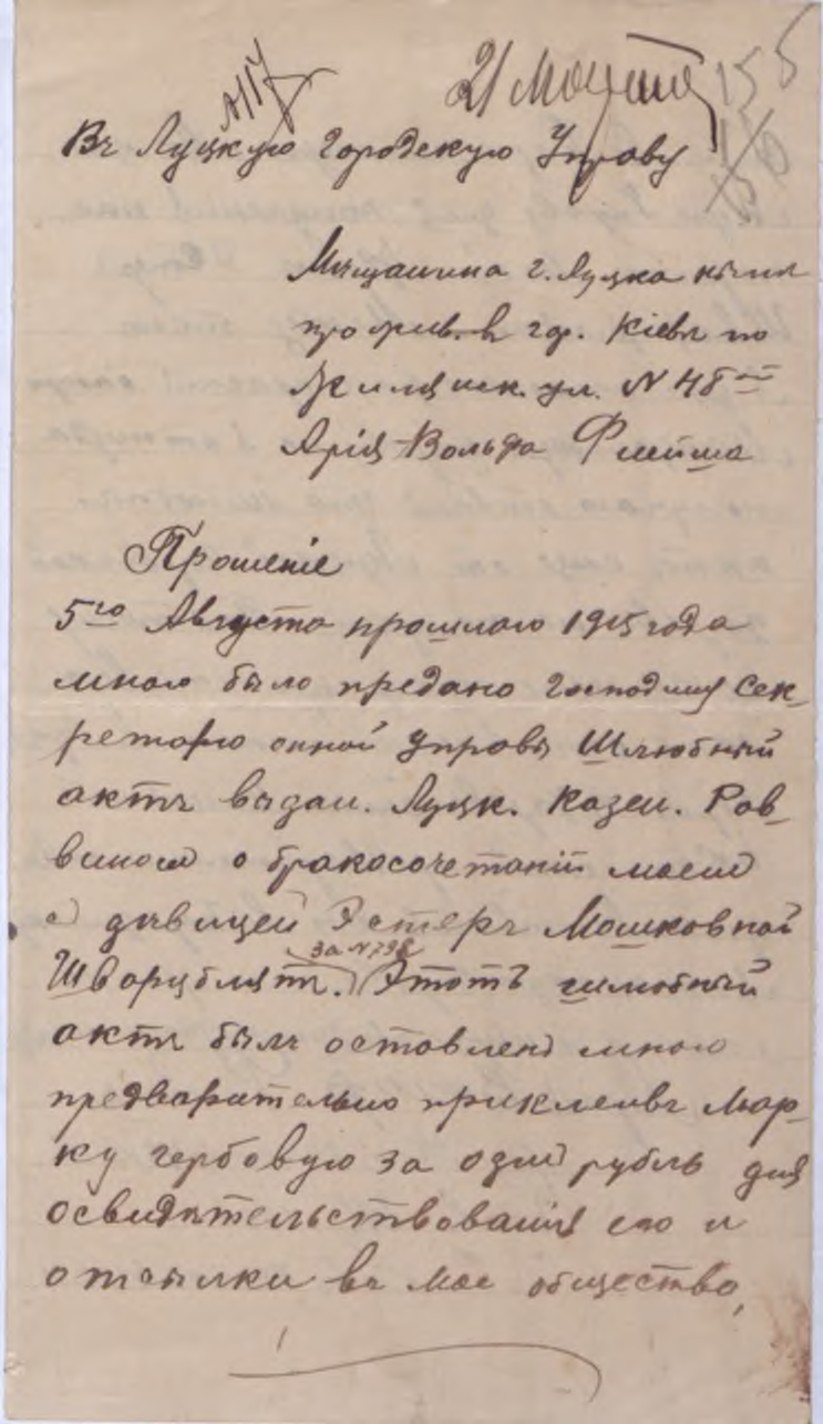 № 117
21 Марта
Въ Луцкую Городскую Управу
Мѣщанина г. Луцка нынѣ
прожив. в гор. Кіевѣ по
Жилянск. ул. N 48
Арія-Вольфа Флейша
Прошеніе
5го Августа прошлаго 1915 года
мною было предано Господину Сек-
ретарю оной управы Шлюбный
актъ выдан. Луцк. Казен. Рав-
виномъ о бракосочетаніи моемъ
съ дѣвицей Эстеръ Мошковной
за N 798
Шварцблятъ. Этотъ шлюбный
актъ былъ оставленъ мною
предварительно приклеивъ мар-
ку гербовую за одинъ рубль для
освидѣтельствованія его и
отсылки въ мое общество,